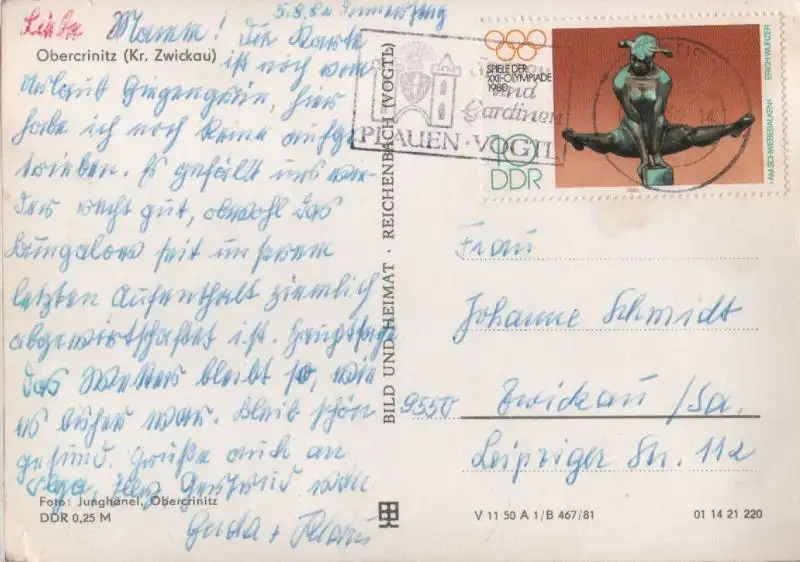 5.8.82 Donnerstag
Liebe Mamm! Die Karte
Obercrinitz (Kr. Zwickau)
ist noch vom
Urlaub Giegengrün, hier
habe ich noch keine aufge
trieben. Es gefällt uns wie-
der recht gut, obwohl das
Bungalow seit unserem
letzten Aufenthalt ziemlich
abgewirtschaftet ist. Hauptsache
das Wetter bleibt so, wie
es bisher war. Bleib schön
gesund. Grüße auch an
Gertrud von
Gerda + Klaus
Foto: Junghänel, Obercrinitz
DDR 0,25 M
BILD UND HEIMAT · REICHENBACH (VOGTL)
und
Gardinen
PLAUEN · VOGTL
SPIELE DER
XXII. OLYMPIADE
1980
10
DDR
ERICH WURZER
»AM SCHWEBEBALKEN«
1980
Frau
Johanne Schmidt
9550 Zwickau/Sa.
Leipziger Str. 112
V 11 50 A 1/B 467/81
01 14 21 220